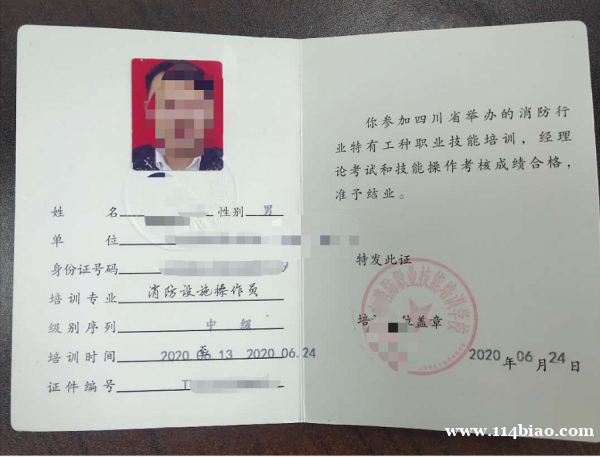 姓 名 性别 男
单 位
身份证号码
培训专业 消防设施操作员
级别序列 中 级
培训时间 2020.06.13 至 2020.06.24
证件编号
你参加四川省举办的消防行
业特有工种职业技能培训，经理
论考试和技能操作考核成绩合格，
准予结业。
特发此证
培 盖章
消防职业技能培训学校
2020 年 06 月 24 日
www.114biao.com